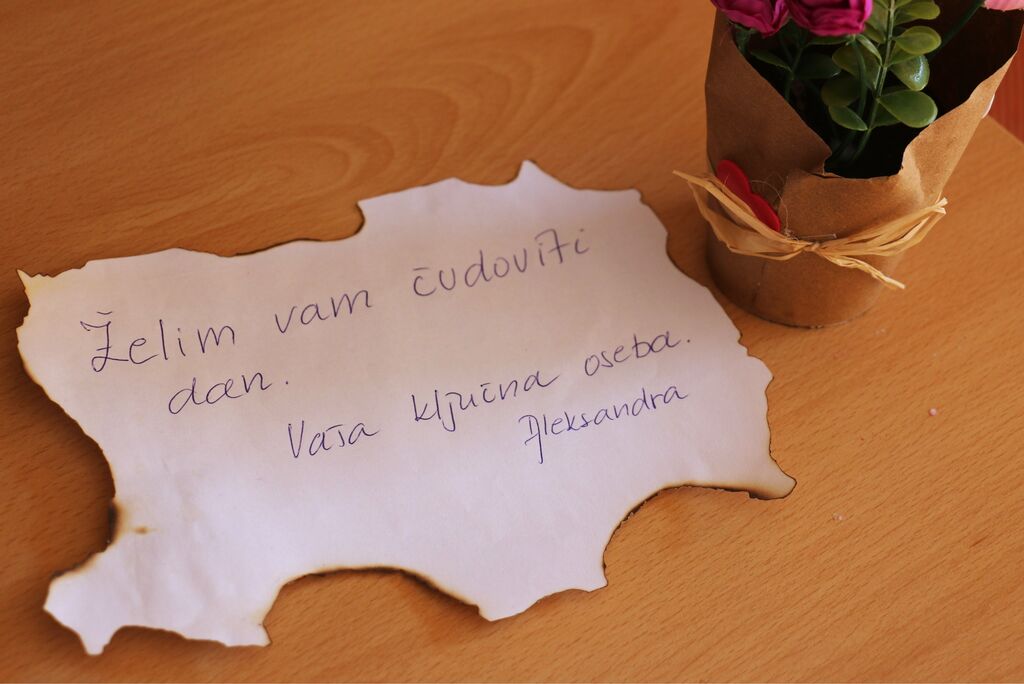 Želim vam čudoviti
dan.
Vaša ključna oseba.
Aleksandra